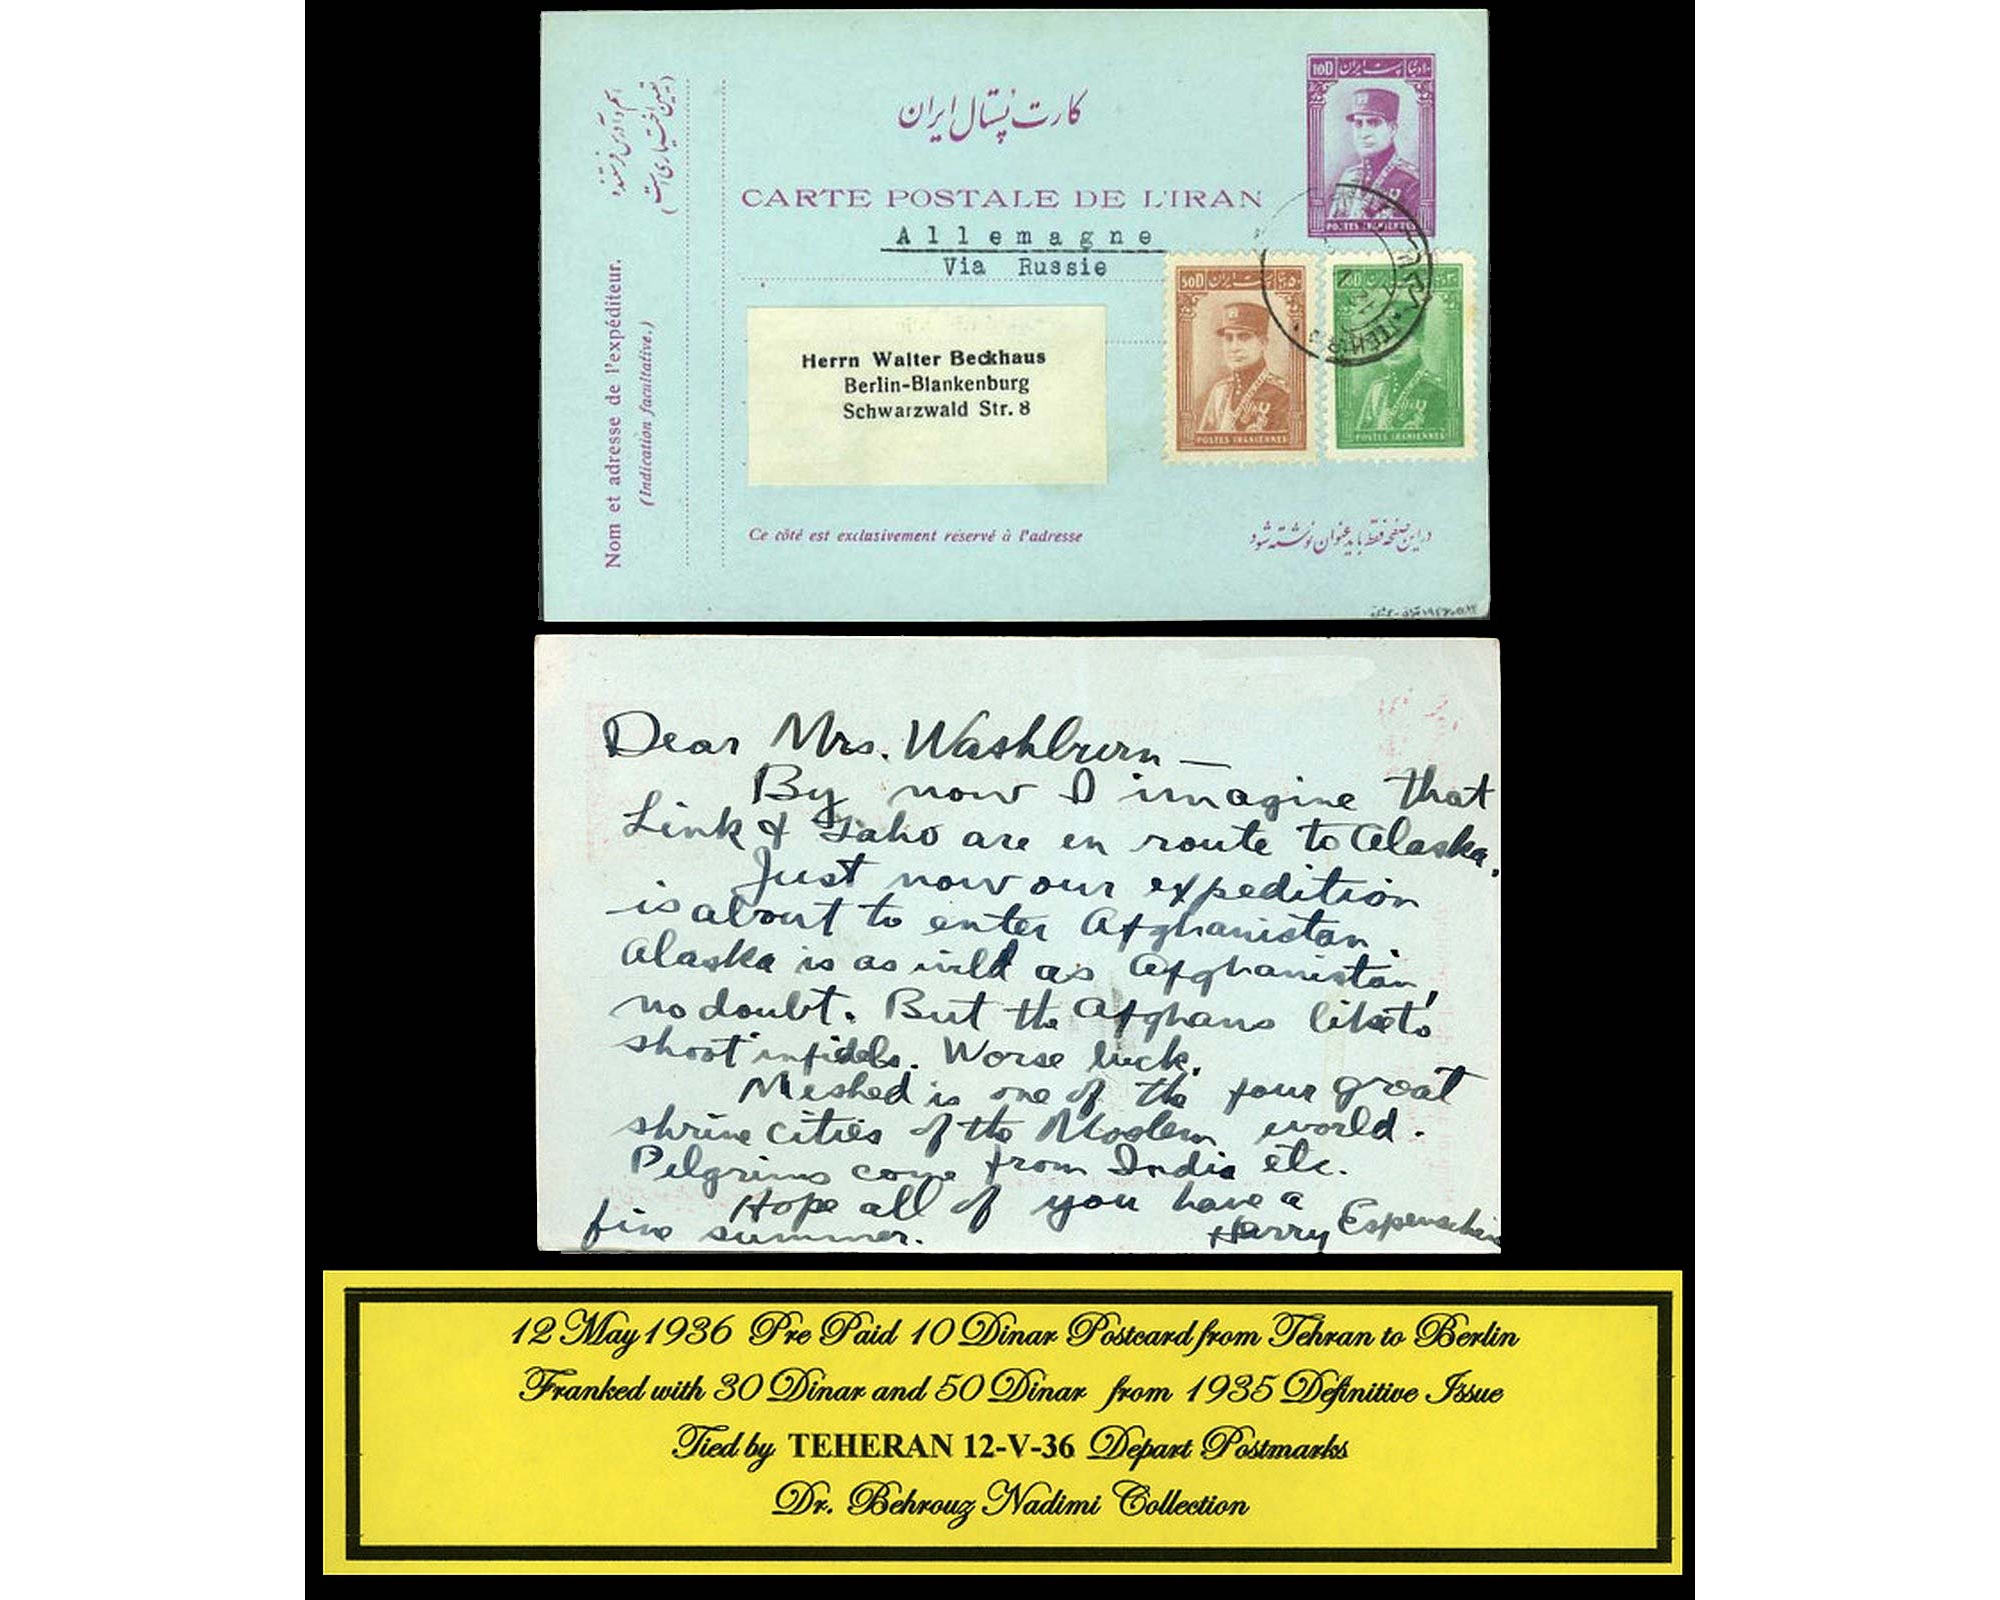 کارت پستال ایران
CARTE POSTALE DE L'IRAN
Allemagne
Via Russie
اسم و آدرس فرستنده
(تعیین اختیاری است)
Nom et adresse de l'expéditeur.
(Indication facultative.)
10D پست ایران
POSTES IRANIENNES
50D پست ایران
POSTES IRANIENNES
پست ایران
POSTES IRANIENNES
Herrn Walter Beckhaus
Berlin-Blankenburg
Schwarzwald Str. 8
Ce côté est exclusivement réservé à l'adresse
در این صفحه فقط باید عنوان نوشته شود
Dear Mrs. Washburn —
By now I imagine that
Link & Taho are en route to Alaska.
Just now our expedition
is about to enter Afghanistan.
Alaska is as wild as Afghanistan,
no doubt. But the Afghans like to
shoot infidels. Worse luck.
Meshed is one of the four great
shrine cities of the Moslem world.
Pilgrims come from India etc.
Hope all of you have a
fine summer. Harry Espenschied
12 May 1936 Pre Paid 10 Dinar Postcard from Tehran to Berlin
Franked with 30 Dinar and 50 Dinar from 1935 Definitive Issue
Tied by TEHERAN 12-V-36 Depart Postmarks
Dr. Behrouz Nadimi Collection